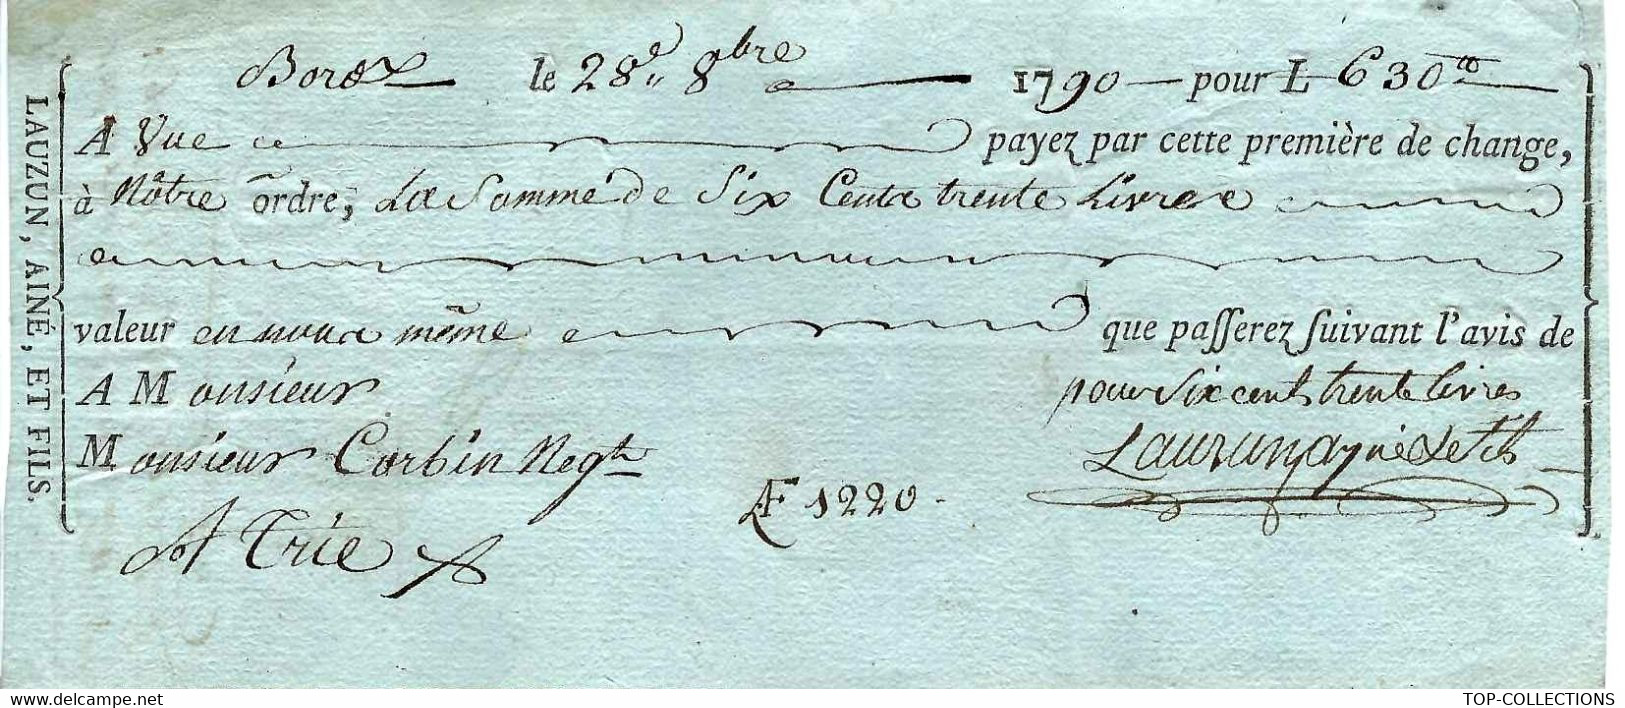 LAUZUN, AINÉ, ET FILS.
Bordx le 28e 8bre 1790 pour L 630 tt
A Vue payez par cette première de change,
à Nôtre ordre, La Somme de Six Cents trente Livres
valeur en nous même que passerez suivant l'avis de
A Monsieur pour Six cents trente livres
Monsieur Corbin Negt Lauzun ayné & fils
N° 1220
A Trie
TOP-COLLECTIONS